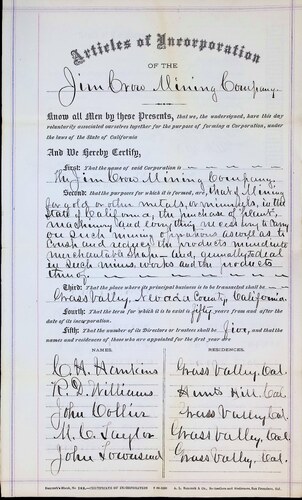 Articles of Incorporation
OF THE
Jim Crow Mining Company.
Know all Men by these Presents, that we, the undersigned, have this day
voluntarily associated ourselves together for the purpose of forming a Corporation, under
the laws of the State of California
And We Hereby Certify,
First: That the name of said Corporation is
The Jim Crow Mining Company.
Second: that the purposes for which it is formed, are, that of Mining
for gold or other metals, or minerals, in the
State of California, the purchase of plant,
machinery and everything necessary to carry
on such mining operations as well as to
crush and reduce the products mined into
merchantable shape and generally to deal
in such mines, works and the products
thereof
Third: That the place where its principal business is to be transacted shall be
Grass Valley, Nevada County, California.
Fourth: That the term for which it is to exist is fifty years from and after the
date of its incorporation.
Fifth: That the number of its Directors or trustees shall be five, and that the
names and residences of those who are appointed for the first year are
NAMES. RESIDENCES.
C. H. Hankins Grass Valley, Cal.
R. D. Williams Hunts Hill, Cal.
John Collier Grass Valley, Cal.
M. C. Taylor Grass Valley, Cal.
John Townsend Grass Valley, Cal.